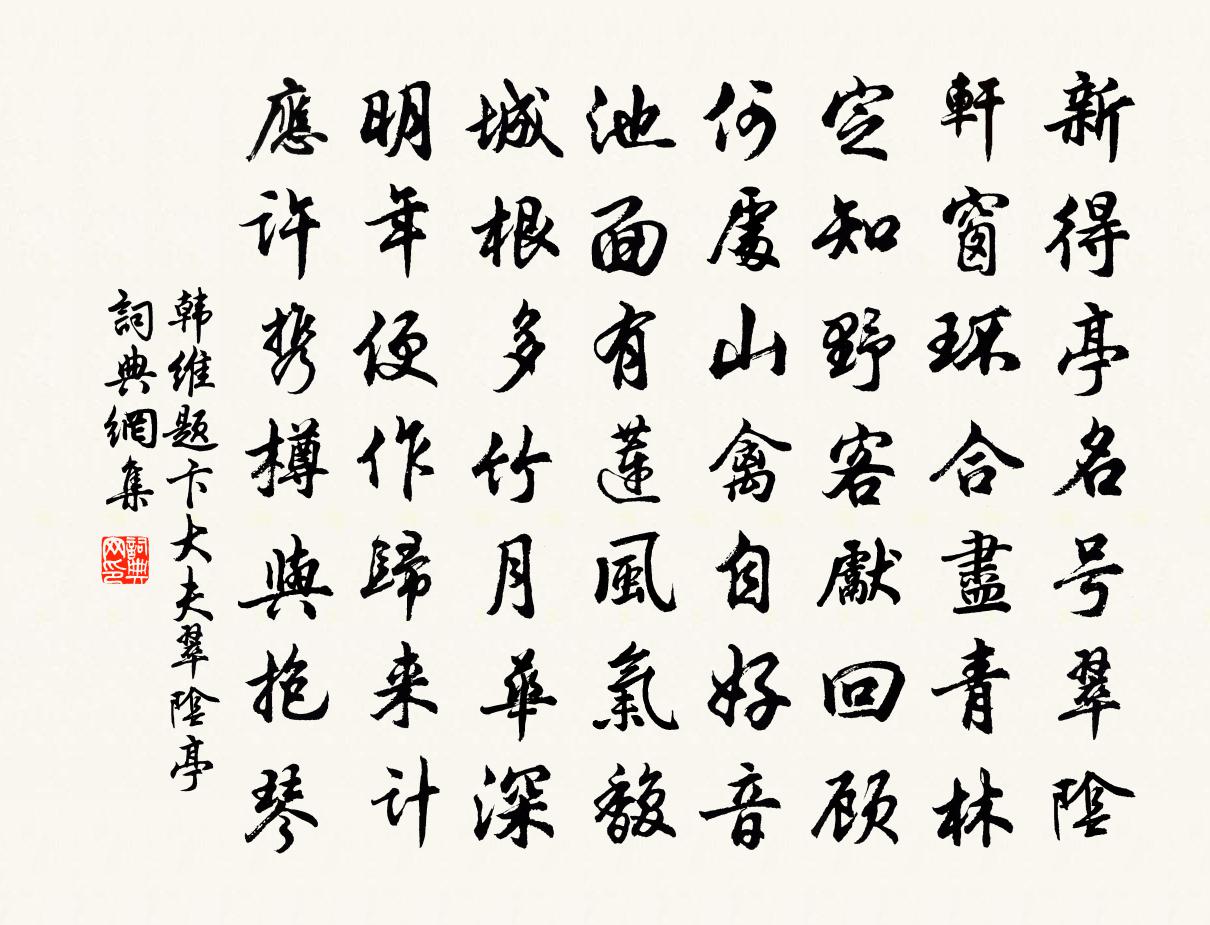 新得亭名号翠陰
軒窗环合盡青林
定知野客獻回顾
何處山禽自好音
池面有蓮風氣馥
城根多竹月華深
明年便作歸来计
應許携樽與抱琴
韩维题卞大夫翠陰亭
詞典網集
詞典网印